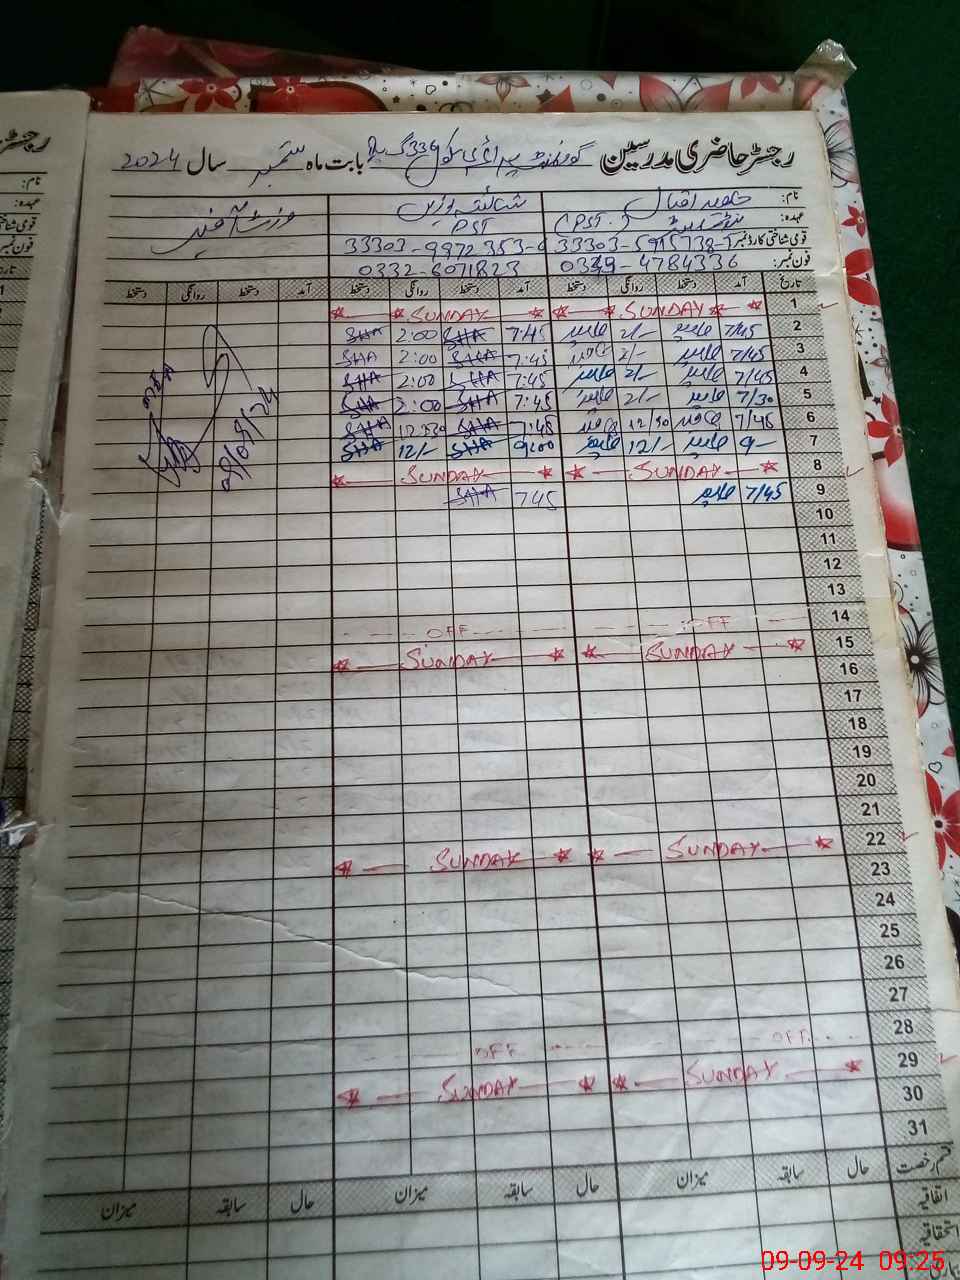 رجسٹر حاضری مدرسین گورنمنٹ پرائمری سکول 336 گ ب بابت ماہ ستمبر سال 2024
نام: جاوید اقبال شائستہ
عہدہ: (PST) PST
قومی شناختی کارڈ نمبر 33303-9972353-
فون نمبر: 0349-4784336 0332-6071823
تاریخ آمد دستخط روانگی دستخط آمد دستخط روانگی دستخط آمد دستخط روانگی دستخط
1 SUNDAY SUNDAY
2 7/45 جاوید 2/- جاوید 7:45 SHA 2:00 SHA
3 7/45 جاوید 2/- جاوید 7:45 SHA 2:00 SHA
4 7/45 جاوید 2/- جاوید 7:45 SHA 2:00 SHA
5 7/30 جاوید 2/- جاوید 7:45 SHA 2:00 SHA
6 7/45 جاوید 12/30 جاوید 7:45 SHA 12:30 SHA
7 9- جاوید 12/- جاوید 9:00 SHA 12/- SHA
8 SUNDAY SUNDAY
9 7/45 جاوید 7:45 SHA
09/09/24
10
11
12
13
14 OFF OFF
15 SUNDAY SUNDAY
16
17
18
19
20
21
22 SUNDAY SUNDAY
23
24
25
26
27
28 OFF OFF
29 SUNDAY SUNDAY
30
31
قسم رخصت حال سابقہ میزان حال سابقہ میزان حال سابقہ میزان
اتفاقیہ
استحقاقیہ
09-09-24 09:25